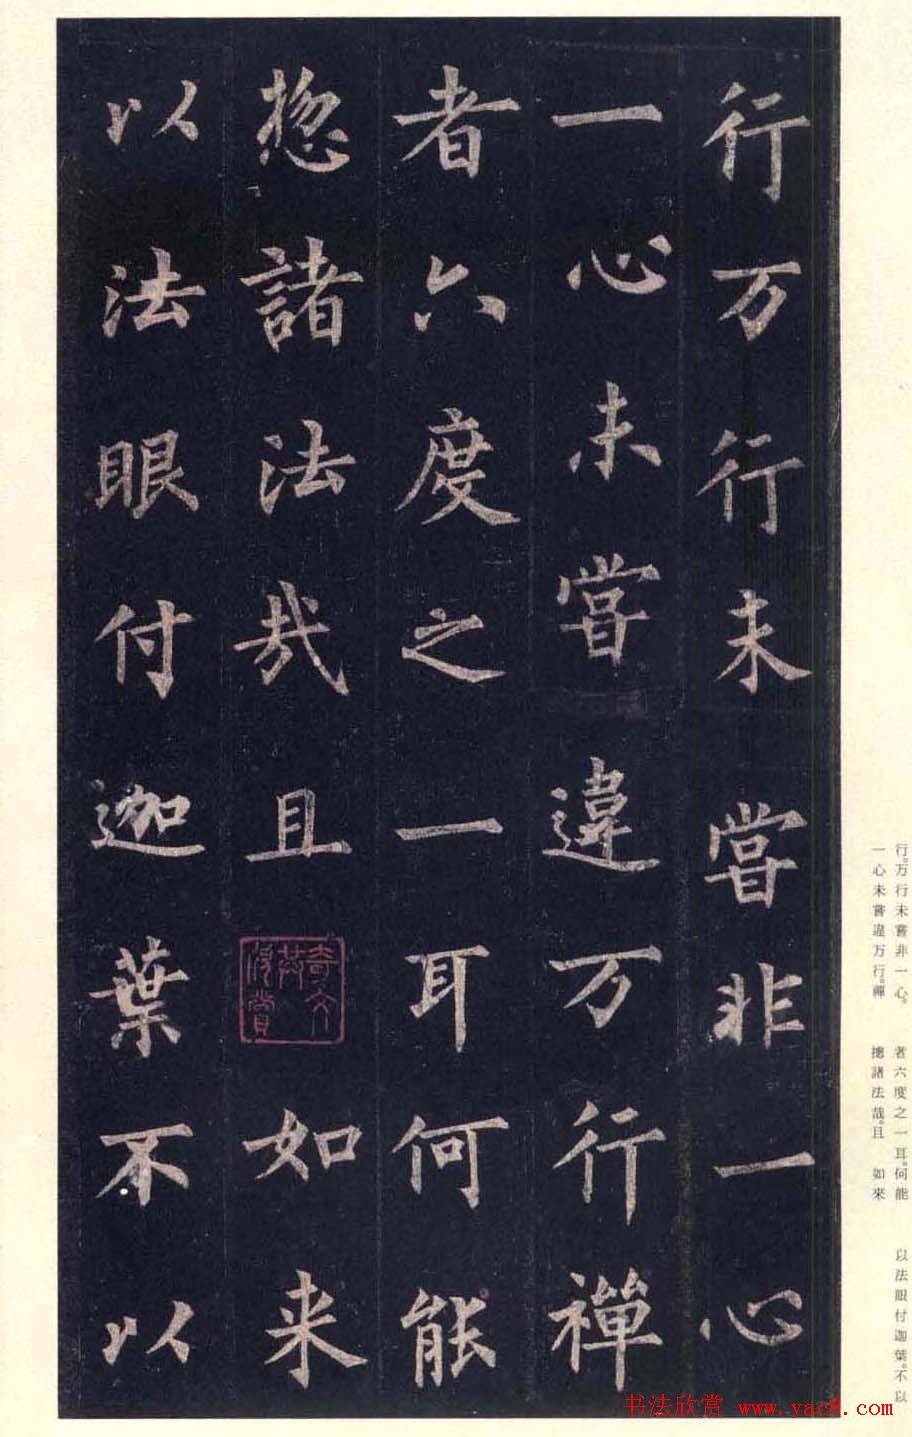 行万行未嘗非一心
一心未嘗違万行禪
者六度之一耳何能
揔諸法哉且 如来
以法眼付迦葉不以
行。万行未嘗非一心。
一心未嘗違万行。禪
者六度之一耳。何能
摠諸法哉。且 如來
以法眼付迦葉。不以
书法欣赏 www.yac8.com